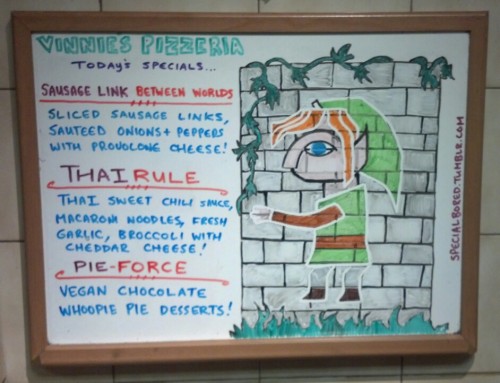 VINNIES PIZZERIA
TODAY'S SPECIALS...
SAUSAGE LINK BETWEEN WORLDS
SLICED SAUSAGE LINKS,
SAUTEED ONIONS + PEPPERS
WITH PROVOLONE CHEESE!
THAI RULE
THAI SWEET CHILI SAUCE,
MACARONI NOODLES, FRESH
GARLIC, BROCCOLI WITH
CHEDDAR CHEESE!
PIE-FORCE
VEGAN CHOCOLATE
WHOOPIE PIE DESSERTS!
SPECIALBORED.TUMBLR.COM